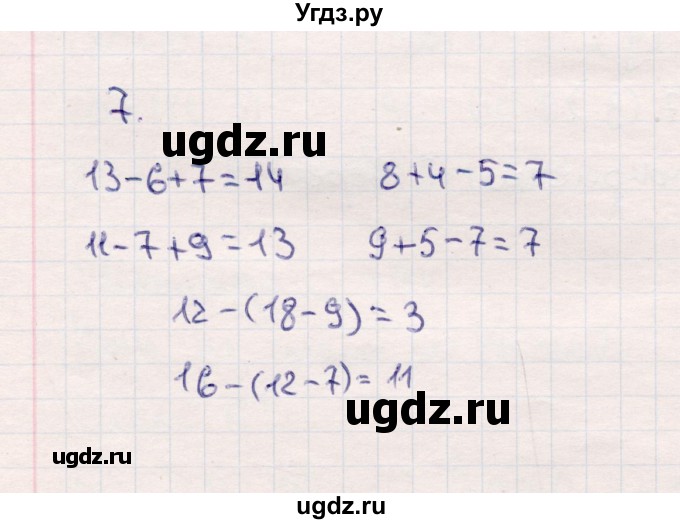 Угдз.ру
7.
ugdz.ru
13-6+7=14 8+4-5=7
11-7+9=13 9+5-7=7
12-(18-9)=3
16-(12-7)=11
ugdz.ru
ugdz.ru
ugdz.ru